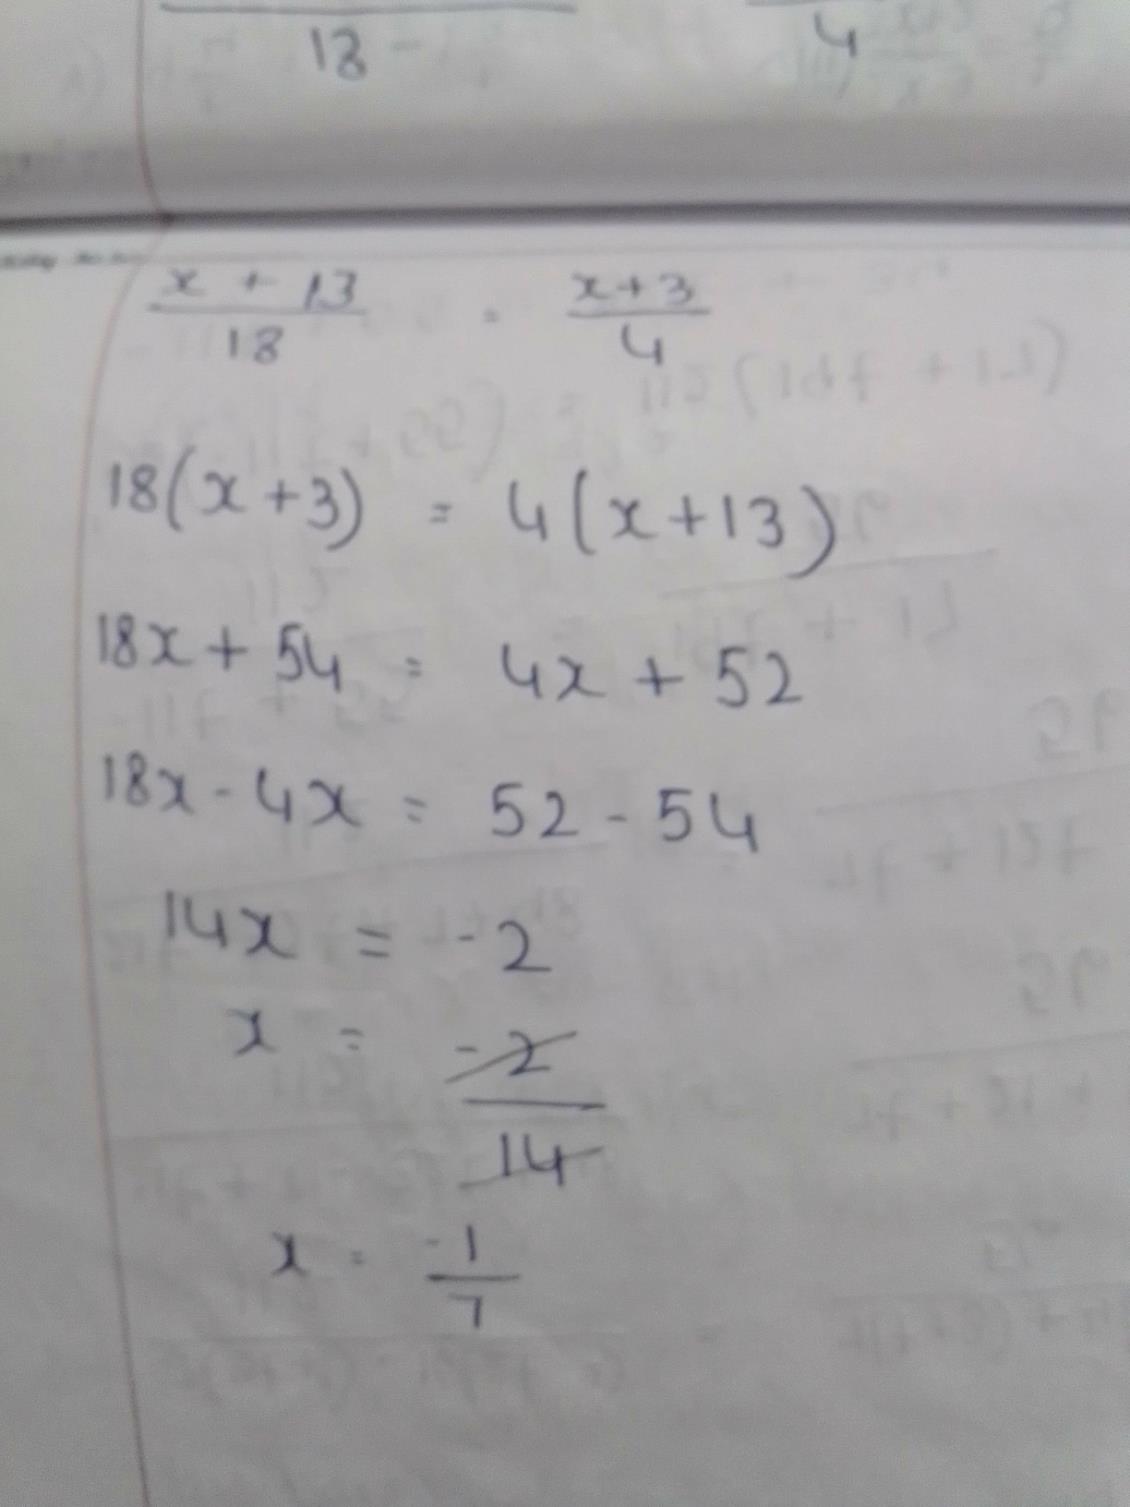 18 4
x + 13 / 18 = x+3 / 4
18(x+3) = 4(x+13)
18x + 54 = 4x + 52
18x - 4x = 52 - 54
14x = -2
x = -2 / 14
x = -1 / 7